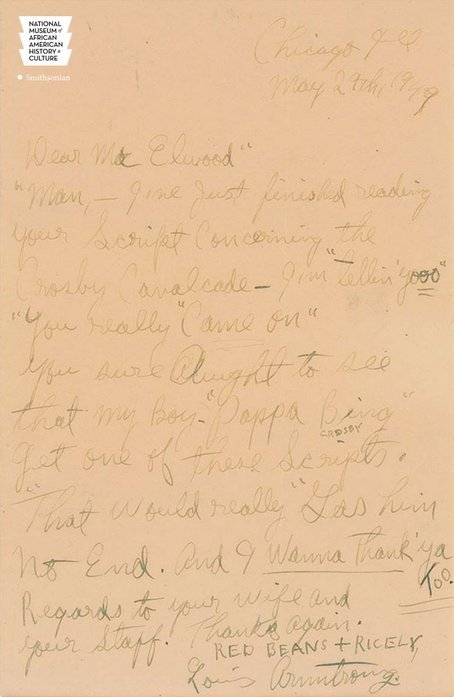 NATIONAL
MUSEUM of
AFRICAN
AMERICAN
HISTORY &
CULTURE
Smithsonian
Chicago Ill
May 29th, 1949
Dear Mr Elwood"
"Man,— I'me Just finished reading
your Script Concerning the
Crosby Cavalcade – I'm "tellin' yooo"
"You really "Came on"
You sure Aught to see
that my Boy – "Pappa Bing"
CROSBY
get one of these Scripts.
"That would really "Gas him
No End. And I Wanna Thank' ya
Too.
Regards to your wife and
your Staff. Thanks again.
RED BEANS + RICELY,
Louis Armstrong.